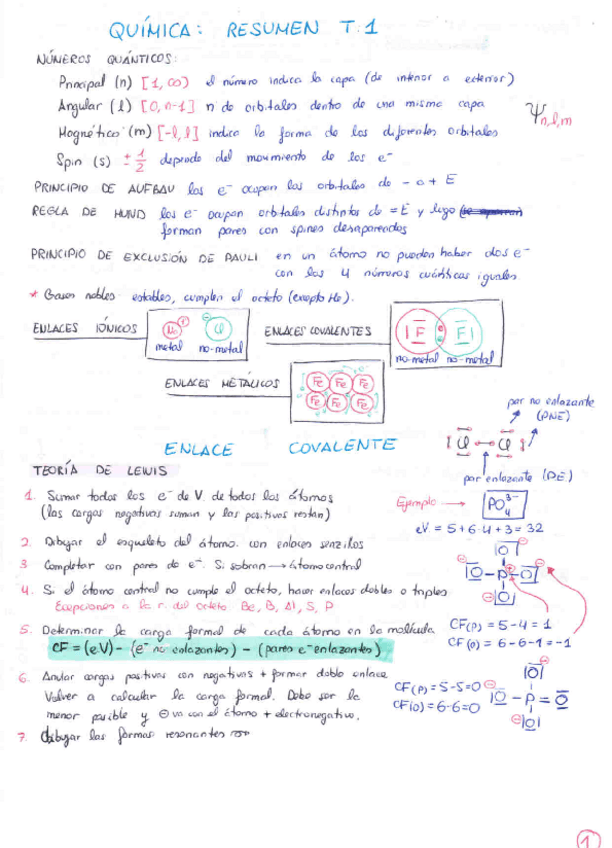 QUÍMICA: RESUMEN T.1
NÚMEROS QUÁNTICOS:
Principal (n) [1, ∞) el número indica la capa (de interior a exterior)
Angular (l) [0, n-1] nº de orbitales dentro de una misma capa
Magnético (m) [-l, l] indica la forma de los diferentes orbitales
Ψn,l,m
Spin (s) ± 1/2 depende del movimiento de los e⁻
PRINCIPIO DE AUFBAU los e⁻ ocupan los orbitales de - a + E
REGLA DE HUND los e⁻ ocupan orbitales distintos de =E y luego
forman pares con spines desapareados
PRINCIPIO DE EXCLUSIÓN DE PAULI en un átomo no pueden haber dos e⁻
con los 4 números cuánticos iguales
* Gases nobles estables, cumplen el octeto (excepto He).
ENLACES IÓNICOS
Na Cl
metal no-metal
ENLACES COVALENTES
F F
no-metal no-metal
ENLACES METÁLICOS
Fe Fe Fe
Fe Fe Fe
par no enlazante
(PNE)
Cl Cl
par enlazante (PE)
ENLACE COVALENTE
TEORÍA DE LEWIS
1. Sumar todos los e⁻ de V. de todos los átomos
(las cargas negativas suman y las positivas restan)
Ejemplo → PO₄³⁻
eV = 5+6·4+3 = 32
2. Dibujar el esqueleto del átomo. con enlaces senzillos
3 Completar con pares de e⁻. Si sobran → átomo central
4. Si el átomo central no cumple el octeto, hacer enlaces dobles o triples
Excepciones a la r. del octeto Be, B, Al, S, P
O
O-P-O
O
5. Determinar la carga formal de cada átomo en la molécula
CF = (eV) - (e⁻ no enlazantes) - (pares e⁻ enlazantes)
CF(P) = 5-4 = 1
CF(O) = 6-6-1 = -1
6. Anular cargas positivas con negativas + formar doble enlace
Volver a calcular la carga formal. Debe ser la
menor posible y ⊖ va con el átomo + electronegativo.
CF(P) = 5-5=0
CF(O) = 6-6=0
O
O-P=O
O
7. Dibujar las formas resonantes
1